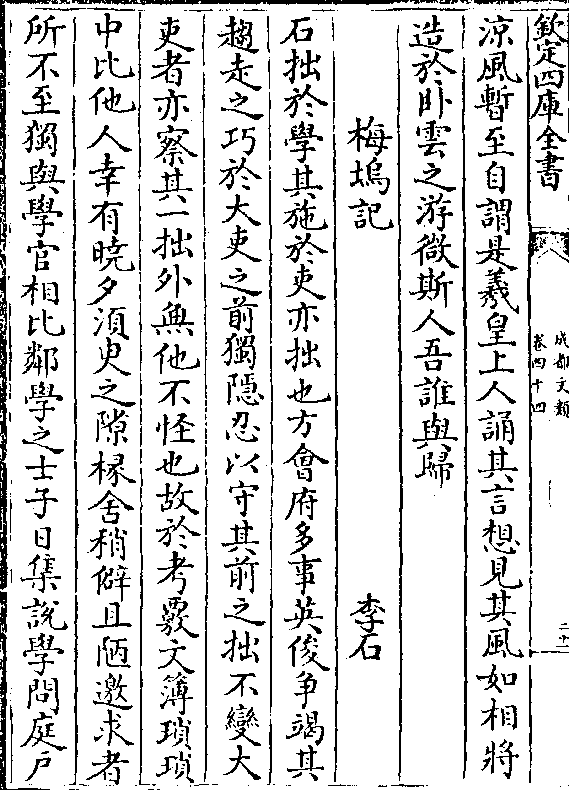 欽定四庫全書
成都文類
卷四十四
二十一
涼風暫至自謂是羲皇上人誦其言想見其風如相將
造於卧雲之游微斯人吾誰與歸
梅塢記
李石
石拙於學其施於吏亦拙也方會府多事英俊争竭其
趨走之巧於大吏之前獨隠忍以守其前之拙不變大
吏者亦察其一拙外無他不怪也故於考覈文簿瑣瑣
中比他人幸有曉夕湏臾之隙椽舍稍僻且陋邀求者
所不至獨與學官相比鄰學之士子日集說學問庭户